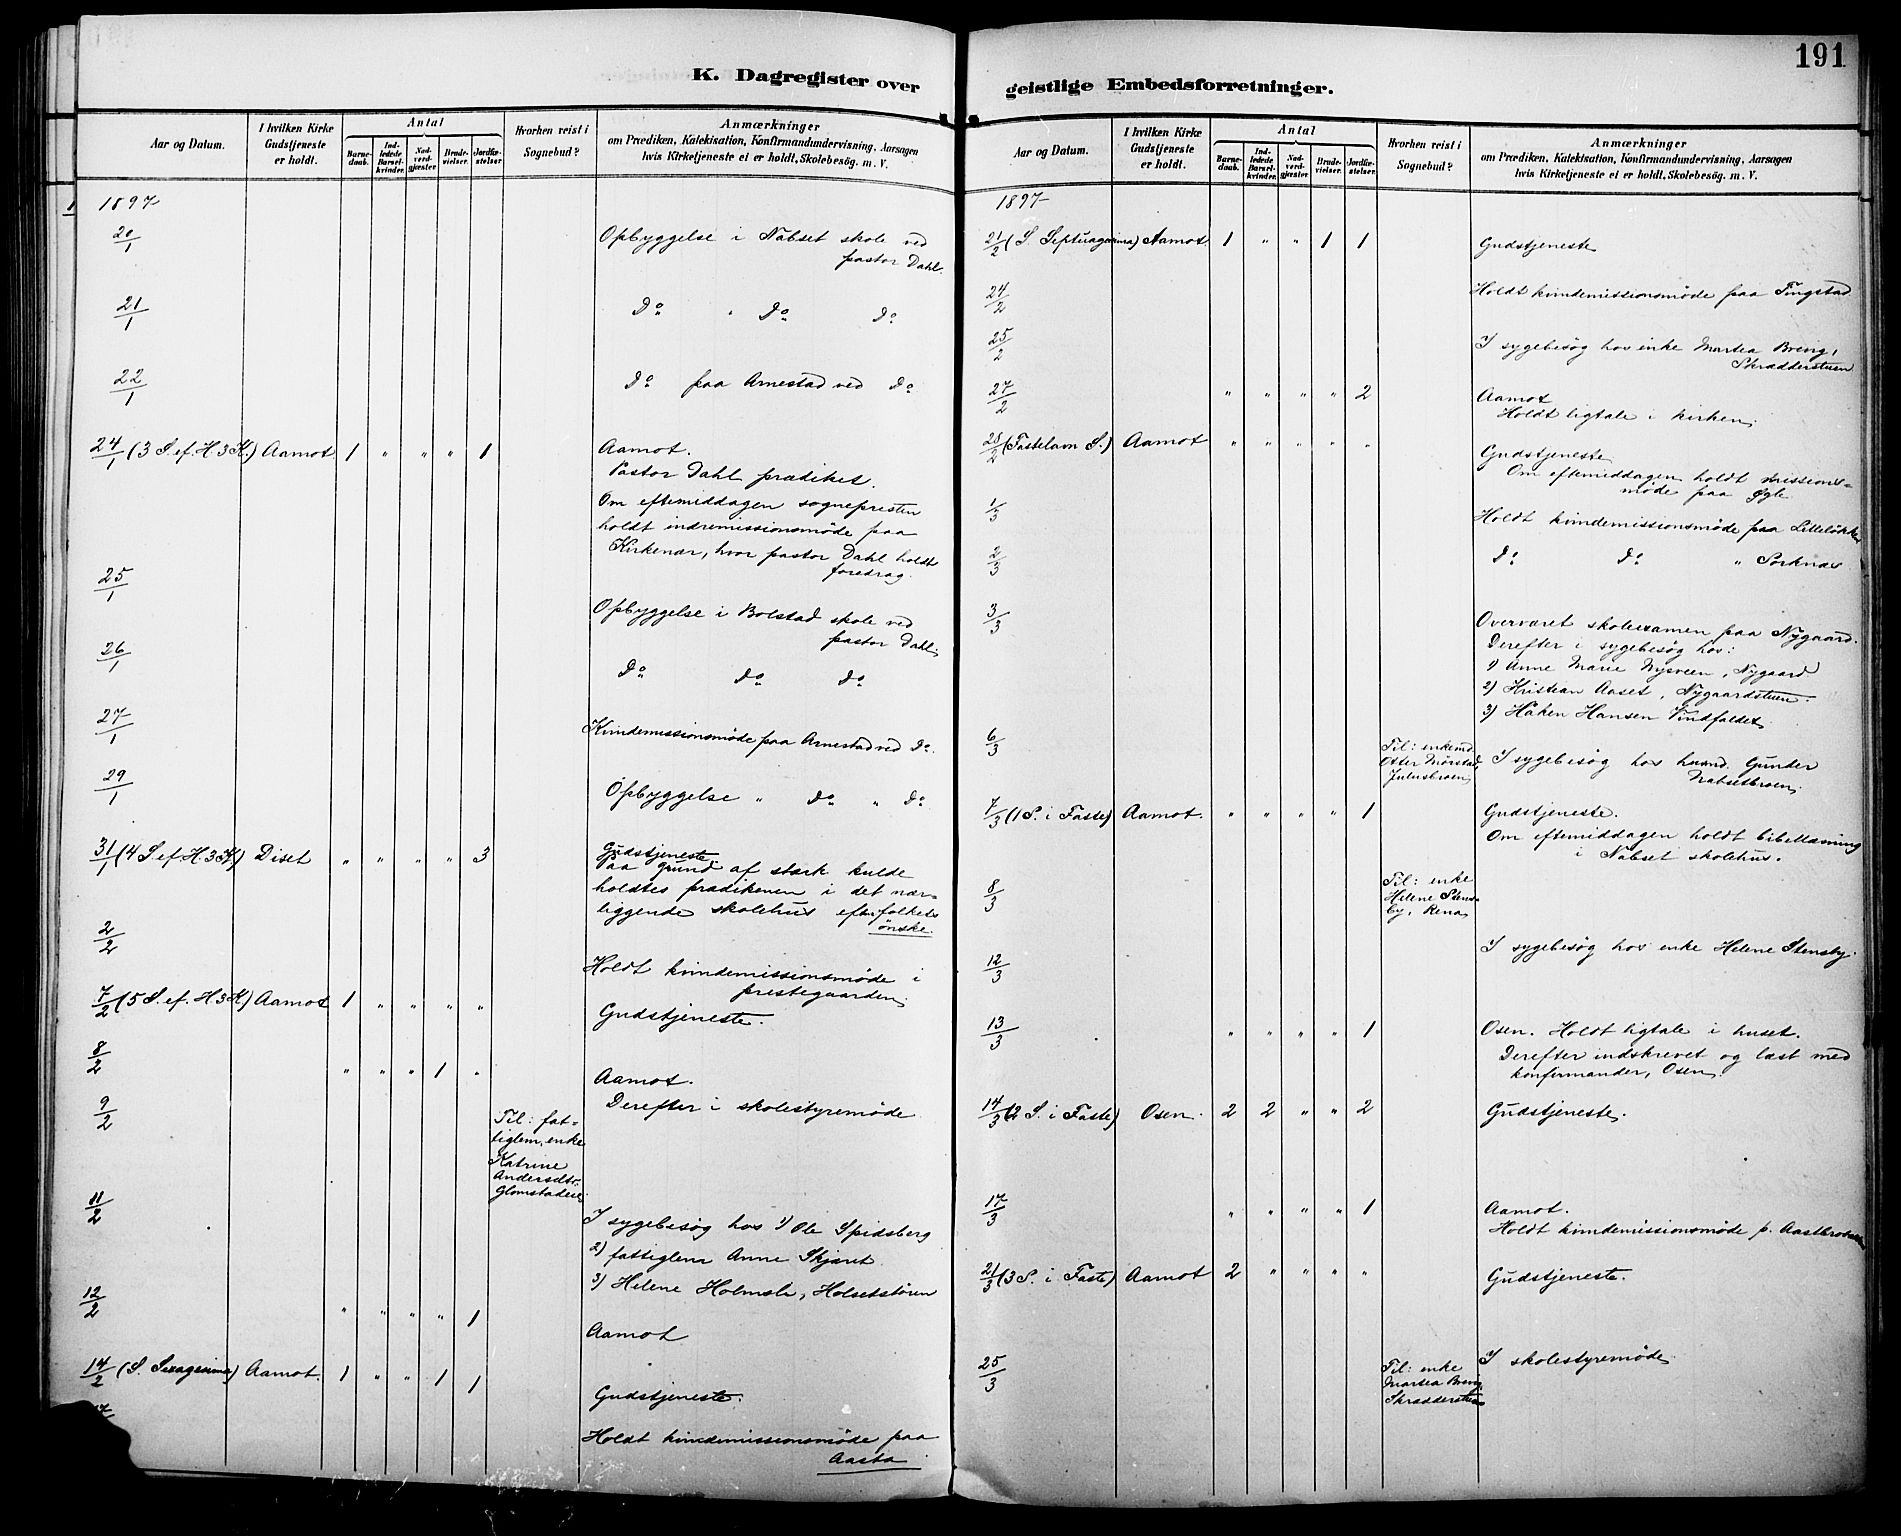 191
K. Dagregister over
geistlige Embedsforretninger.
Aar og Datum.
I hvilken Kirke
Gudstjeneste
er holdt.
Antal
Barne-
daab.
Ind-
ledede
Barsel-
kvinder.
Nad-
verd-
gjæster
Brude-
vielser.
Jordfæ-
stelser
Hvorhen reist i
Sognebud?
Anmærkninger
om Prædiken, Katekisation, Konfirmandundervisning, Aarsagen
hvis Kirketjeneste ei er holdt, Skolebesøg. m. V.
1897
20/1 Opbyggelse i Nabset skole ved
pastor Dahl.
21/1 Do " Do Do
22/1 Do paa Arnestad ved Do
24/1 (3 S. ef. H. 3 K.) Aamot 1 " " " 1 Aamot.
Pastor Dahl prædiket.
Om eftemiddagen sognepresten
holdt indremissionsmöde paa
Kirkenær, hvor pastor Dahl holdt
foredrag.
25/1 Opbyggelse i Bolstad skole ved
pastor Dahl.
26/1 Do Do Do
27/1 Kvindemissionsmöde paa Arnestad ved Do.
29/1 Opbyggelse " Do " Do.
31/1 (4 S. ef. H. 3 K.) Diset " " " " 3 Gudstjeneste.
Paa grund af stærk kulde
holdtes prædikenen i det nær-
liggende skolehus efter folkets
ønske.
2/2 Holdt kvindemissionsmöde i
prestegaarden.
7/2 (5 S. ef. H. 3 K) Aamot 1 " " " " Gudstjeneste.
8/2 " " " 1 " Aamot.
Derefter i skolestyremöde.
9/2 Til: fat-
tiglem, enke
Katrine
Andersdtr.
Glomstadeie.
11/2 I sygebesög hos 1) Ole Spidsberg
2) fattiglem Anne Skjæret
3) Helene Holmsle, Holsetstören
12/2 " " " " 1 Aamot
14/2 (S. Sexagesima) Aamot. 1 " " 1 1 Gudstjeneste.
17
Holdt kvindemissionsmöde paa
Aasta
Aar og Datum.
I hvilken Kirke
Gudstjeneste
er holdt.
Antal
Barne-
daab.
Ind-
ledede
Barsel-
kvinder.
Nad-
verd-
gjæster
Brude-
vielser.
Jordfæ-
stelser
Hvorhen reist i
Sognebud?
Anmærkninger
om Prædiken, Katekisation, Konfirmandundervisning, Aarsagen
hvis Kirketjeneste ei er holdt, Skolebesøg. m. V.
1897
21/2 (S. Septuagesima) Aamot 1 " " 1 1 Gudstjeneste
24/2 Holdt kvindemissionsmöde paa Tingstad
25/2 I sygebesög hos enke Martea Brevig,
Skrædderstuen
27/2 " " " " 2 Aamot
Holdt ligtale i kirken.
28/2 (Fastelavn S.) Aamot " " " " " Gudstjeneste
Om eftemiddagen holdt missions-
möde paa Ygle.
1/3 Holdt kvindemissionsmöde paa Lillelökken
2/3 Do Do " Sorknæs
3/3 Overværet skoleexamen paa Nygaard.
Derefter i sygebesög hos:
1) Anne Marie Nysveen, Nygaard
2) Kristian Aaset, Nygaardstuen.
3) Håken Hansen Vindfaldet.
6/3 Til: enkemd.
Oster Mörstad,
Julusbroen. I sygebesög hos husmd. Gunder
Nabsetbroen.
7/3 (1 S. i Faste) Aamot. " " " " 1 Gudstjeneste.
Om eftemiddagen holdt bibellæsning
i Nabset skolehus.
8/3 Til: enke
Helene Stens-
by, Rena
12/3 I sygebesög hos enke Helene Stensby.
13/3 " " " " 1 Osen. Holdt ligtale i huset.
Derefter indskrevet og læst med
konfirmander, Osen.
14/3 (2 S. i Faste) Osen. 2 2 " " 2 Gudstjeneste.
17/3 " " " " 1 Aamot.
Holdt kvindemissionsmöde p. Aastbrobakken
21/3 (3 S. i Faste) Aamot 2 " " " " Gudstjeneste.
25/3 Til: enke
Martea Brevig
Skrædderstuen I skolestyremöde